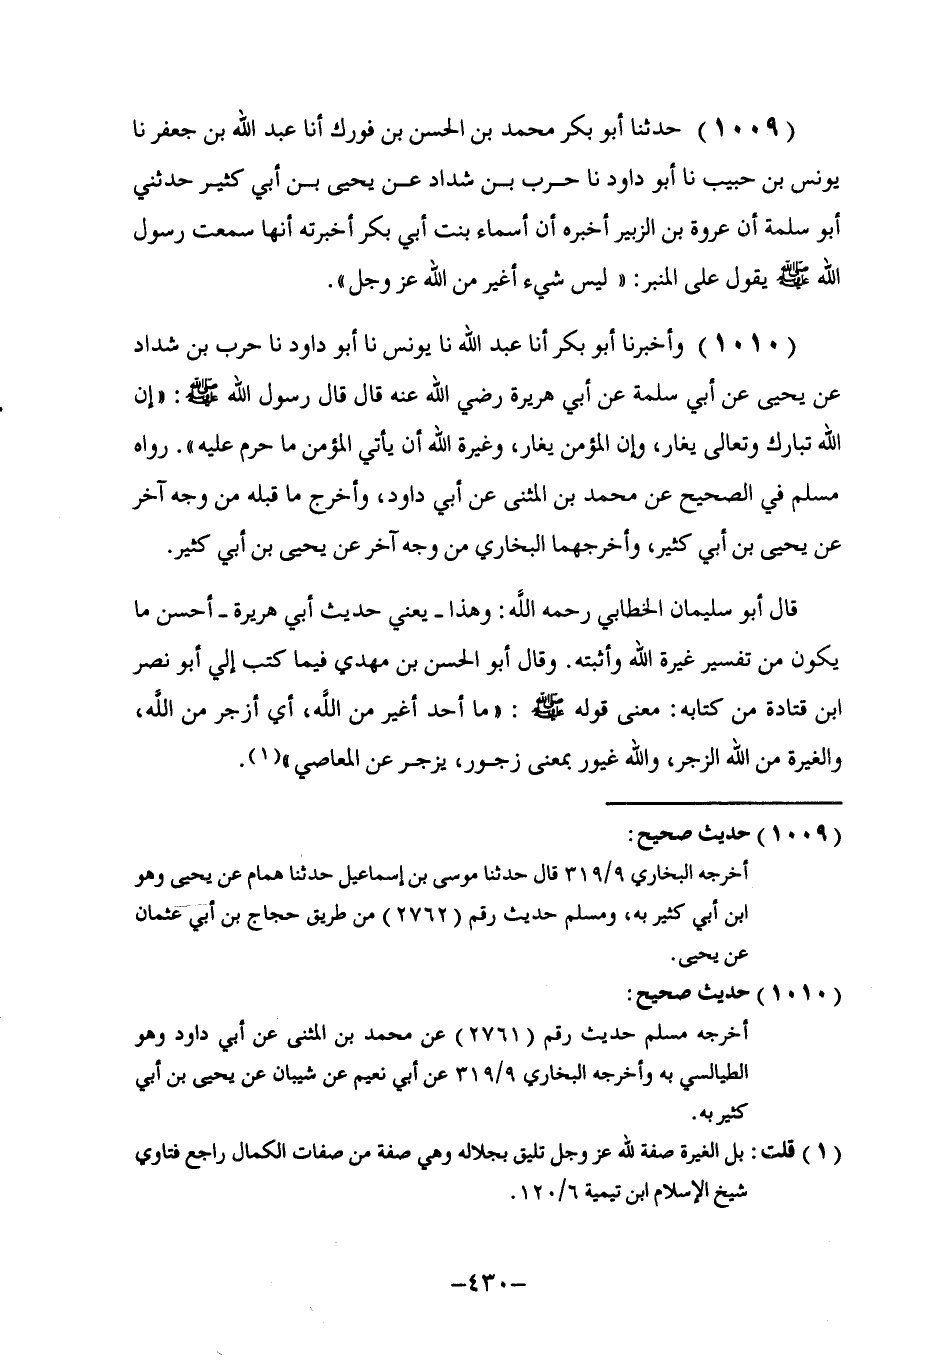 (١٠٠٩) حدثنا أبو بكر محمد بن الحسن بن فورك أنا عبد الله بن جعفر نا
يونس بن حبيب نا أبو داود نا حرب بن شداد عن يحيى بن أبي كثير حدثني
أبو سلمة أن عروة بن الزبير أخبره أن أسماء بنت أبي بكر أخبرته أنها سمعت رسول
الله ﷺ يقول على المنبر: « ليس شيء أغير من الله عز وجل».
(١٠١٠) وأخبرنا أبو بكر أنا عبد الله نا يونس نا أبو داود نا حرب بن شداد
عن يحيى عن أبي سلمة عن أبي هريرة رضي الله عنه قال قال رسول الله ﷺ: «إن
الله تبارك وتعالى يغار، وإن المؤمن يغار، وغيرة الله أن يأتي المؤمن ما حرم عليه». رواه
مسلم في الصحيح عن محمد بن المثنى عن أبي داود، وأخرج ما قبله من وجه آخر
عن يحيى بن أبي كثير، وأخرجهما البخاري من وجه آخر عن يحيى بن أبي كثير.
قال أبو سليمان الخطابي رحمه اللَّه: وهذا ـ يعني حديث أبي هريرة ـ أحسن ما
يكون من تفسير غيرة الله وأثبته. وقال أبو الحسن بن مهدي فيما كتب إلي أبو نصر
ابن قتادة من كتابه: معنى قوله ﷺ : «ما أحد أغير من اللَّه، أي أزجر من اللَّه،
والغيرة من الله الزجر، والله غيور بمعنى زجور، يزجر عن المعاصي»(١).
(١٠٠٩) حديث صحيح:
أخرجه البخاري ٣١٩/٩ قال حدثنا موسى بن إسماعيل حدثنا همام عن يحيى وهو
ابن أبي كثير به، ومسلم حديث رقم (٢٧٦٢) من طريق حجاج بن أبي عثمان
عن يحيى.
(١٠١٠) حديث صحيح:
أخرجه مسلم حديث رقم (٢٧٦١) عن محمد بن المثنى عن أبي داود وهو
الطيالسي به وأخرجه البخاري ٣١٩/٩ عن أبي نعيم عن شيبان عن يحيى بن أبي
كثير به.
(١) قلت: بل الغيرة صفة لله عز وجل تليق بجلاله وهي صفة من صفات الكمال راجع فتاوي
شيخ الإسلام ابن تيمية ١٢٠/٦.
-٤٣٠-